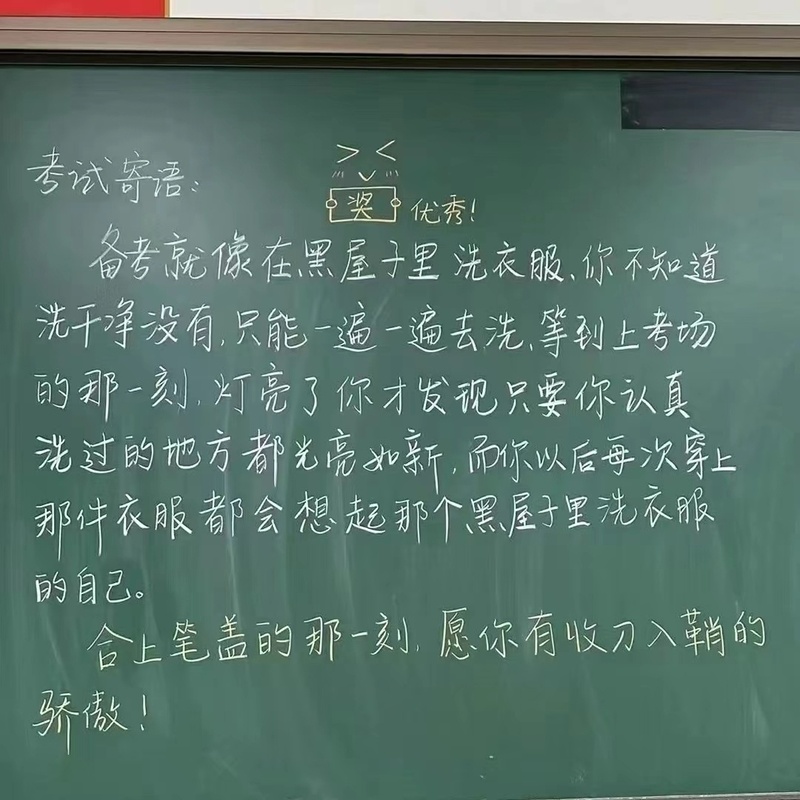 考试寄语:
奖 优秀!
备考就像在黑屋子里洗衣服、你不知道
洗干净没有,只能一遍一遍去洗、等到上考场
的那一刻,灯亮了你才发现只要你认真
洗过的地方都光亮如新,而你以后每次穿上
那件衣服都会想起那个黑屋子里洗衣服
的自己。
合上笔盖的那一刻,愿你有收刀入鞘的
骄傲!